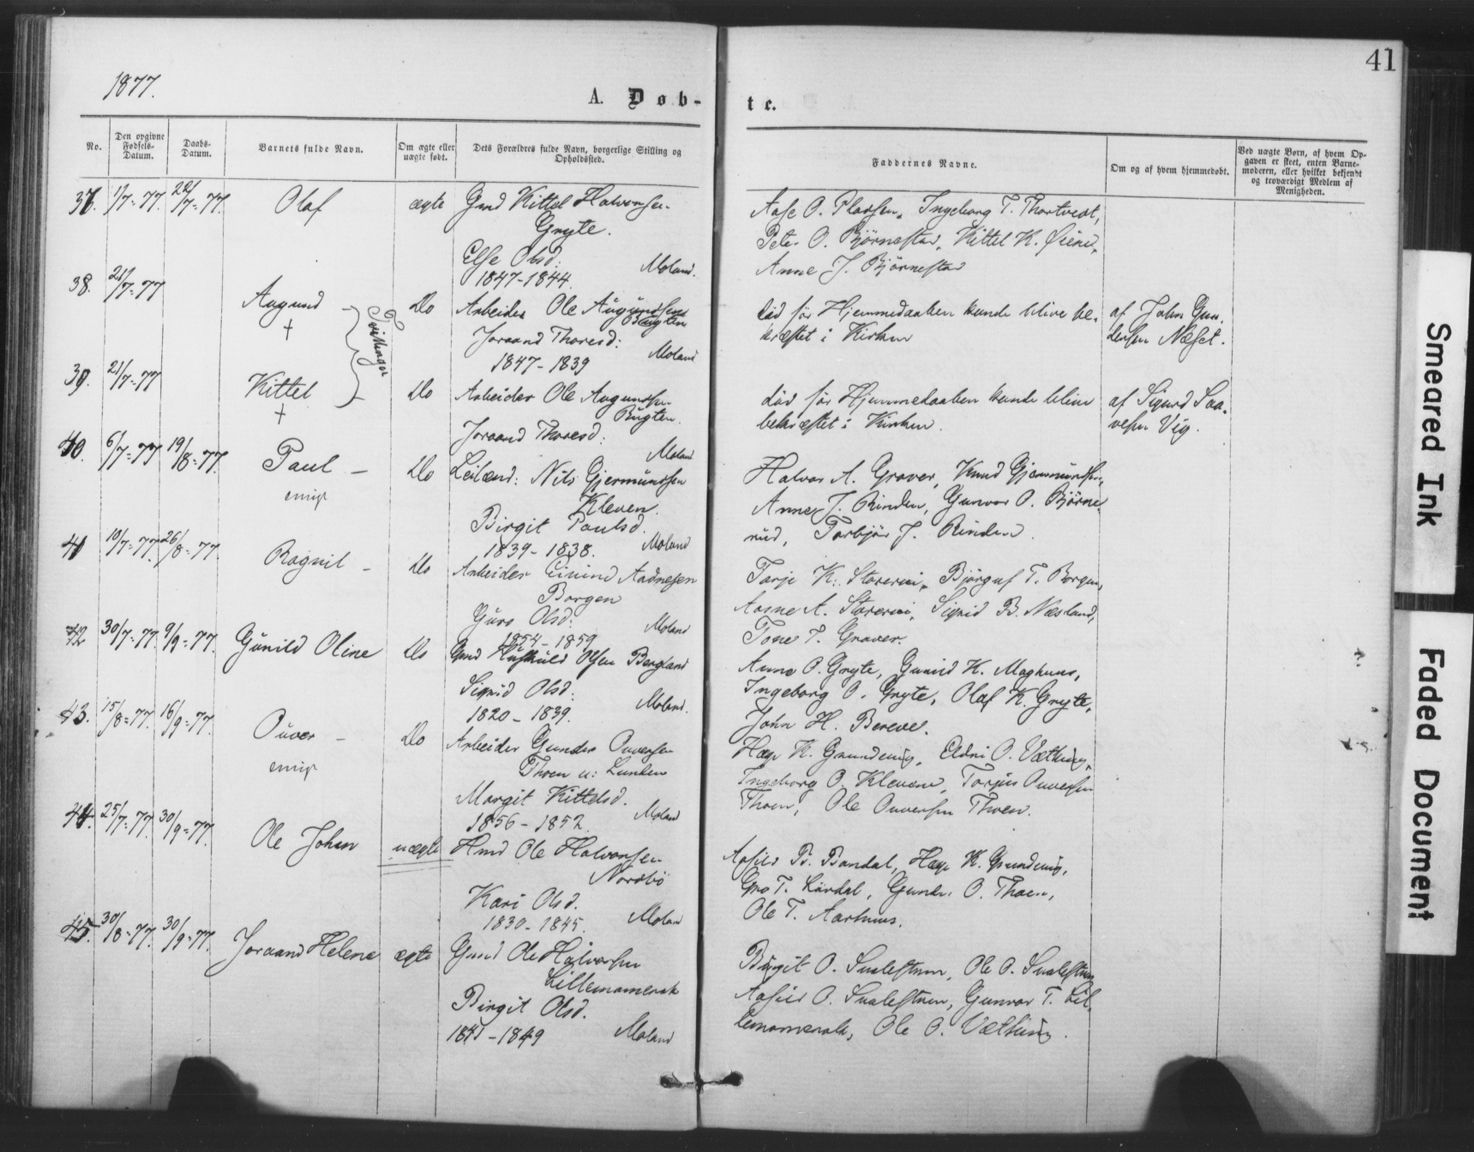 41
1877.
A. Døb-
te.
No.
Den opgivne Fødsels-Datum.
Daabs-Datum.
Barnets fulde Navn.
Om ægte eller uægte født.
Dets Forældres fulde Navn, borgerlige Stilling og Opholdssted.
Faddernes Navne.
Om og af hvem hjemmedøbt.
Ved uægte Børn, af hvem Opgaven er skeet, enten Barnemoderen, eller hvilket bekjendt og troværdigt Medlem af Menigheden.
37. 1/7-77. 22/7-77. Olaf ægte Gmd Kittel Halvorsen
Gryte.
Else Olsd:
1847-1844. Moland.
Aase O. Thortvedt,
Peter O. Bjørnestad, Kittel K.
Anne J. Bjørnestad
38. 21/7-77 Augund Do Arbeider Ole Augundsen
Bugten
+
Tvillinger
Joraand Thoresd:
1847-1839 Moland
død før Hjemmedaaben kunde blive be-
kræftet i Kirken
af John Gun-
dersen Næset.
39. 21/7-77 Kittel Do Arbeider Ole Augundsen
Bugten.
+
Joraand Thoresd:
Moland
død før Hjemmedaaben kunde blive
bekræftet i Kirken.
af Sigurd
Vig.
40. 6/7-77 19/8-77. Paul - Do Leilænd: Nils Gjermundsen
Kleven.
emigr
Birgit Paulsd.
1839-1838. Moland
Halvor A. Graver, Knud Gjermundsen,
Anne J. Rinden, Gunvor O. Bjørne-
rud, Torbjør J. Rinden.
41 10/7-77. 26/8-77. Ragnil - Do Arbeider Eivind Aadnesen
Borgen
Guro Olsd:
1854-1859 Moland
Tarje K. Storerei, Bjørguf T. Borgen,
Aasne A. Storerei, Sigrid B. Næsland,
Tone T. Graver.
42 30/7-77. 9/9-77. Gunild Oline Do Gmd Olsen Bergland
Sigrid Olsd:
1820-1839. Moland.
Anne O. Gryte, Gunild K. Moghuus,
Ingeborg O. Gryte, Olaf K. Gryte,
John H. Bereve.
43. 15/8-77. 16/9-77. Ouver - Do Arbeider Gunder Ouversen
Thoen u: Lunden
emigr
Margit Kittelsd.
1856-1852. Moland
Hæge K. Grundeiug, O. Vethuig,
Ingeborg O. Kleven, Torjus Ouversen
Thoen, Ole Ouversen Thoen.
44. 25/7-77. 30/9-77. Ole Johan uægte Hmd Ole Halvorsen
Nordbø
Kari Olsd.
1830-1845. Moland
Aasild B. Bandal, Hæge K. Grundeiug,
Gro T. Lårdal, Gunder O. Thoen,
Ole T. Aarhuus.
45. 30/8-77. 30/9-77. Joraand Helene ægte Gmd Ole Halvorsen
Lillemomerak
Birgit Olsd.
1841-1849 Moland
Birgit O. Sualestuen, Ole O. Sualestuen
Aasild O. Sualestuen, Gunvor T. Lil-
lemomerak, Ole O. Vethuig.
Smeared Ink
Faded Document